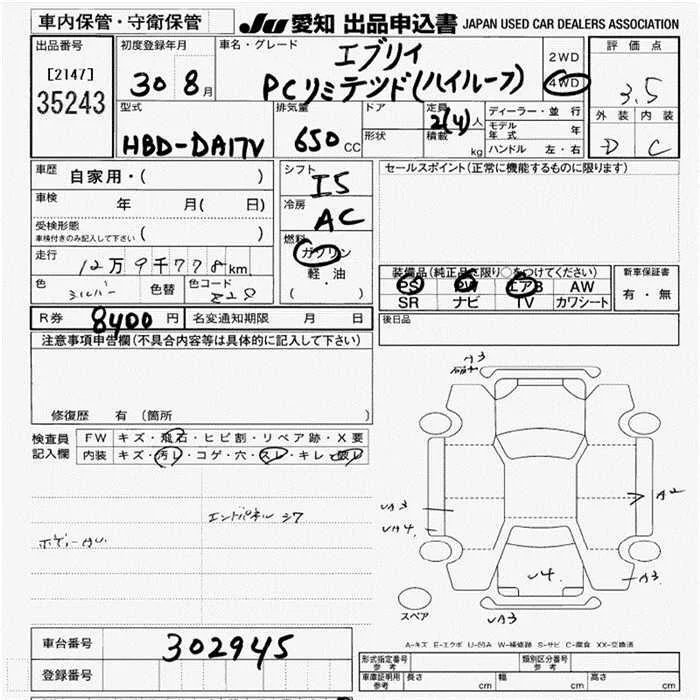 車内保管・守衛保管 JU 愛知 出品申込書 JAPAN USED CAR DEALERS ASSOCIATION
出品番号 初度登録年月 車名・グレード エブリイ 2WD 評価点
[2147] 30 8月 PCリミテッド(ハイルーフ) 4WD 3.5
35243 外装 内装
型式 排気量 ドア 定員 2(4)人 ディーラー・並行 D C
HBD-DA17V 650CC 形状 積載 kg モデル年式 年
ハンドル 左・右
車歴 自家用・( ) シフト I5 セールスポイント(正常に機能するものに限ります)
車検 年 月( 日) 冷房 AC
受検形態
車検付きのみ記入して下さい( )
燃料 ガソリン
走行 12万9千778km 軽・油
( )
装備品(純正品に限り○をつけてください) 新車保証書
色 シルバー 色替 色コード Z2S
PS PW エアB AW 有・無
SR ナビ TV カワシート
R券 8400円 名変通知期限 月 日 後日品
注意事項申告欄(不具合内容等は具体的に記入して下さい)
修復歴 有(箇所 )
検査員 FW キズ・飛石・ヒビ割・リペア跡・X要
記入欄 内装 キズ・汚レ・コゲ・穴・スレ・キレ・
A3
A2
A3
UA3
V4.
A3
スペア
A-キズ E-エクボ U-凹み W-補修跡 S-サビ C-腐食 XX-交換済
車台番号 302945
登録番号
形式指定番号 参考 類別区分番号 参考
車庫証明用 参考 長さ cm 幅 cm 高さ cm